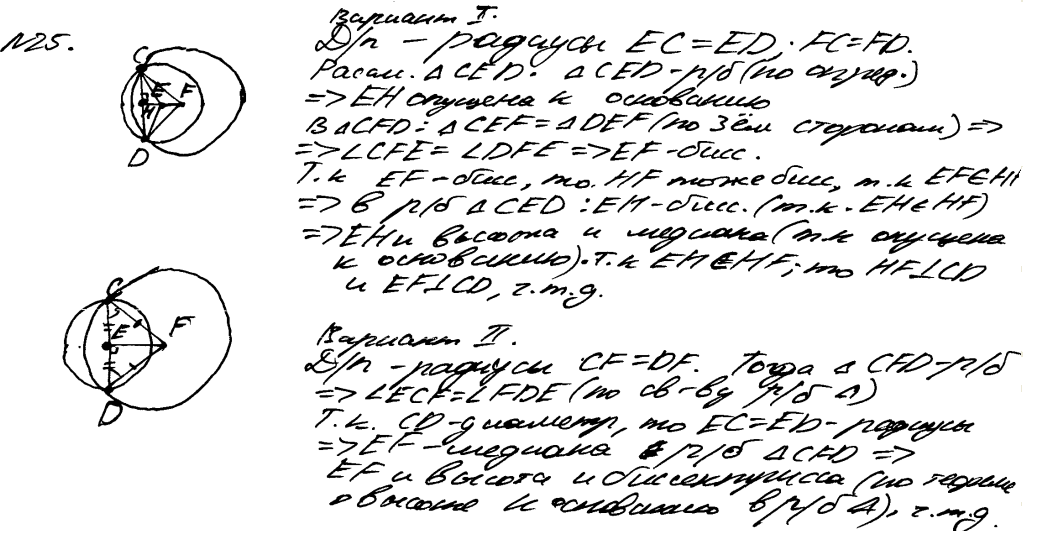 N25.
Вариант I.
Д/п – радиусы EC=ED; FC=FD.
Рассм. △CED. △CED-р/б (по опред.)
=> EH опущена к основанию
В △CFD: △CEF=△DEF (по 3ём сторонам) =>
=> ∠CFE=∠DFE => EF-бис.
Т.к EF-бис, то. HF тоже бис, т.к EF∈HF
=> в р/б △CED: EH-бис. (т.к. EH∈HF)
=> EH и высота и медиана (т.к опущена
к основанию). Т.к EH∈HF; то HF⊥CD
и EF⊥CD, ч.т.д.
C
E
F
H
D
Вариант II.
Д/п – радиусы CF=DF. Тогда △CFD-р/б
=> ∠ECF=∠FDE (по св-ву р/б △)
Т.к. CD-диаметр, то EC=ED-радиусы
=> EF-медиана р/б △CFD =>
EF и высота и биссектрисса (по теореме
о высоте к основанию в р/б △), ч.т.д.
C
E
F
D